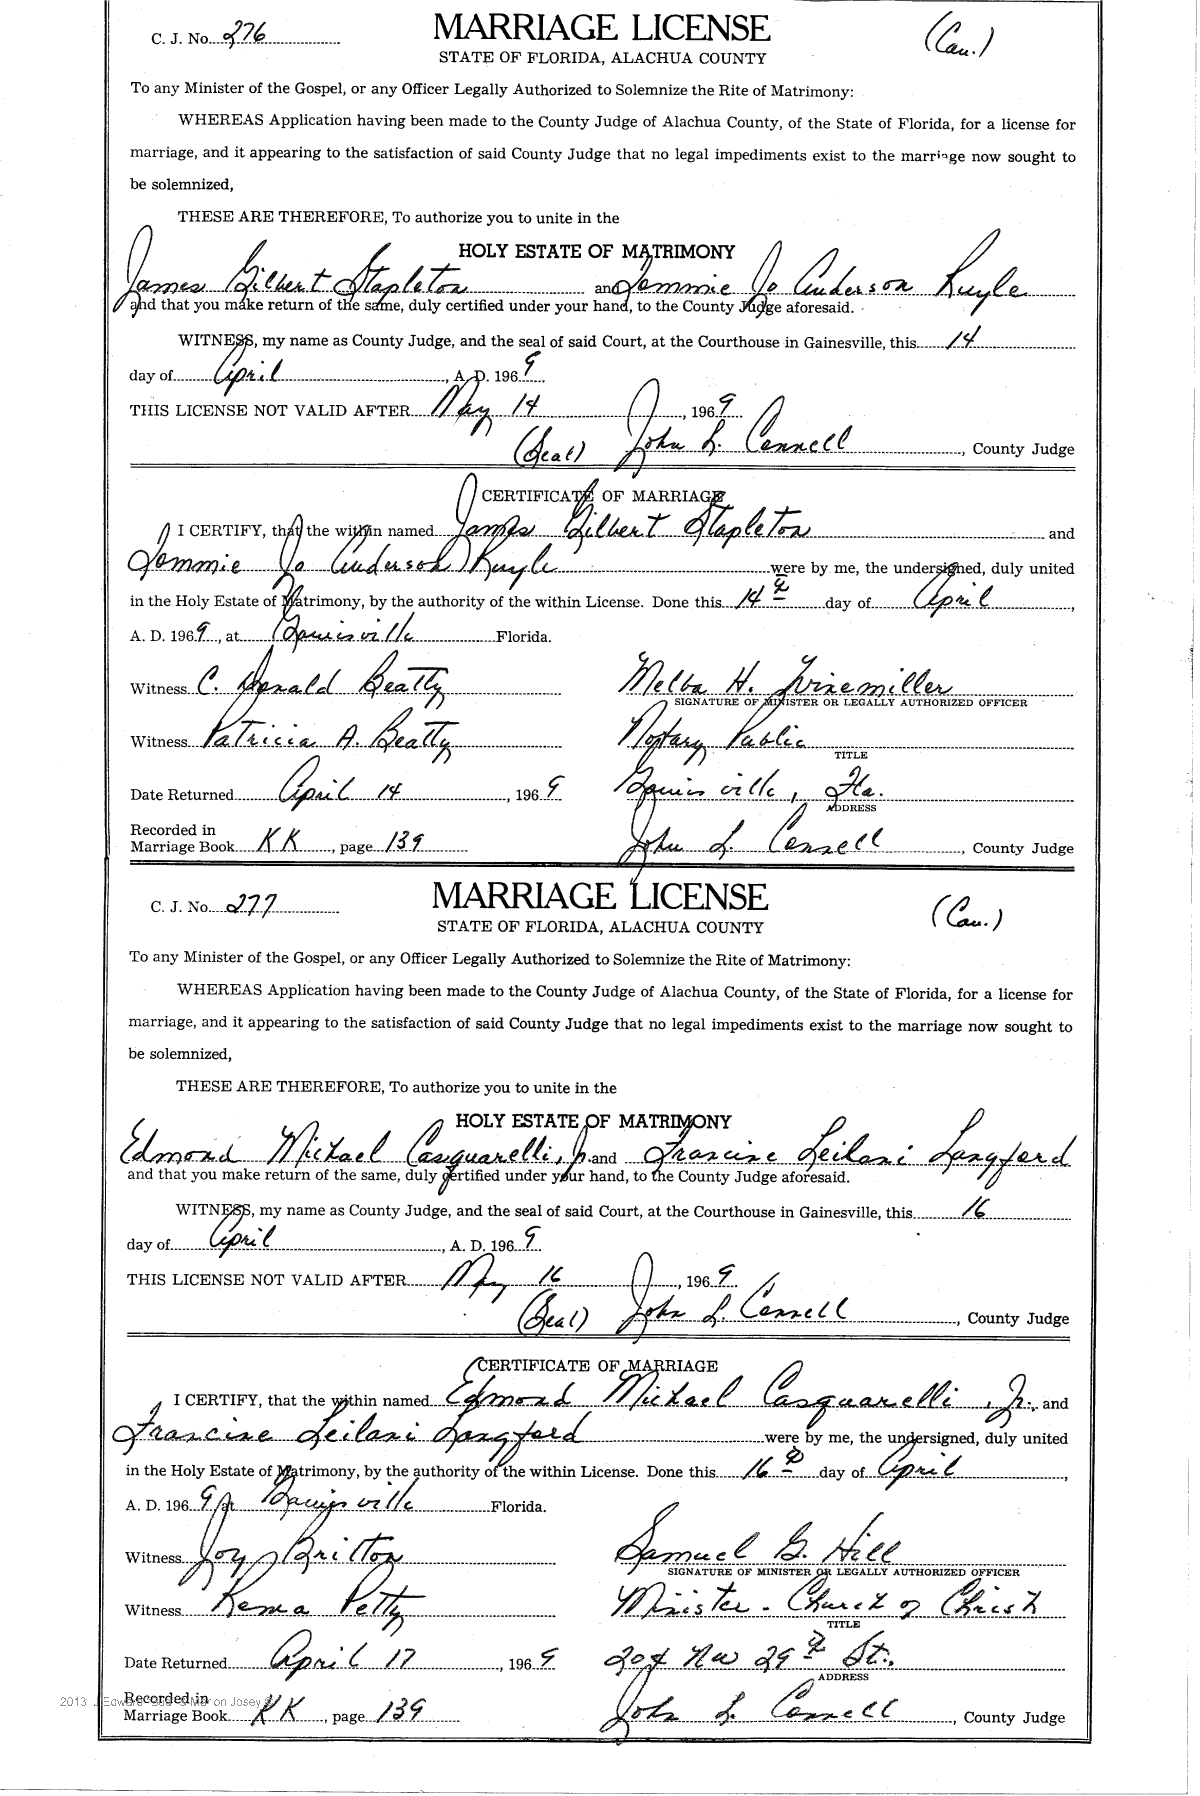 C. J. No. 276
MARRIAGE LICENSE
(Cau.)
STATE OF FLORIDA, ALACHUA COUNTY
To any Minister of the Gospel, or any Officer Legally Authorized to Solemnize the Rite of Matrimony:
WHEREAS Application having been made to the County Judge of Alachua County, of the State of Florida, for a license for
marriage, and it appearing to the satisfaction of said County Judge that no legal impediments exist to the marriage now sought to
be solemnized,
THESE ARE THEREFORE, To authorize you to unite in the
HOLY ESTATE OF MATRIMONY
James Gilbert Stapleton and Tommie Jo Anderson Kuyle
and that you make return of the same, duly certified under your hand, to the County Judge aforesaid.
WITNESS, my name as County Judge, and the seal of said Court, at the Courthouse in Gainesville, this 14
day of April, A. D. 1969
THIS LICENSE NOT VALID AFTER May 14, 1969
(Seal) John L. Connell, County Judge
CERTIFICATE OF MARRIAGE
I CERTIFY, that the within named James Gilbert Stapleton and
Tommie Jo Anderson Kuyle were by me, the undersigned, duly united
in the Holy Estate of Matrimony, by the authority of the within License. Done this 14th day of April,
A. D. 1969, at Gainesville Florida.
Witness C. Donald Beatty Melba H. Winemiller
SIGNATURE OF MINISTER OR LEGALLY AUTHORIZED OFFICER
Witness Patricia A. Beatty Notary Public
TITLE
Date Returned April 14, 1969 Gainesville, Fla.
ADDRESS
Recorded in
Marriage Book KK, page 139 John L. Connell, County Judge
C. J. No. 277
MARRIAGE LICENSE
(Cau.)
STATE OF FLORIDA, ALACHUA COUNTY
To any Minister of the Gospel, or any Officer Legally Authorized to Solemnize the Rite of Matrimony:
WHEREAS Application having been made to the County Judge of Alachua County, of the State of Florida, for a license for
marriage, and it appearing to the satisfaction of said County Judge that no legal impediments exist to the marriage now sought to
be solemnized,
THESE ARE THEREFORE, To authorize you to unite in the
HOLY ESTATE OF MATRIMONY
Edmond Michael Casquarelli, Jr. and Francine Leilani Langford
and that you make return of the same, duly certified under your hand, to the County Judge aforesaid.
WITNESS, my name as County Judge, and the seal of said Court, at the Courthouse in Gainesville, this 16
day of April, A. D. 1969
THIS LICENSE NOT VALID AFTER May 16, 1969
(Seal) John L. Connell, County Judge
CERTIFICATE OF MARRIAGE
I CERTIFY, that the within named Edmond Michael Casquarelli, Jr., and
Francine Leilani Langford were by me, the undersigned, duly united
in the Holy Estate of Matrimony, by the authority of the within License. Done this 16th day of April,
A. D. 1969, at Gainesville Florida.
Witness Joy Britton Samuel G. Hill
SIGNATURE OF MINISTER OR LEGALLY AUTHORIZED OFFICER
Witness Rema Petty Minister - Church of Christ
TITLE
Date Returned April 17, 1969 204 NW 29th St.
ADDRESS
2013 J Edward
Recorded in
Marriage Book KK, page 139 John L. Connell, County Judge